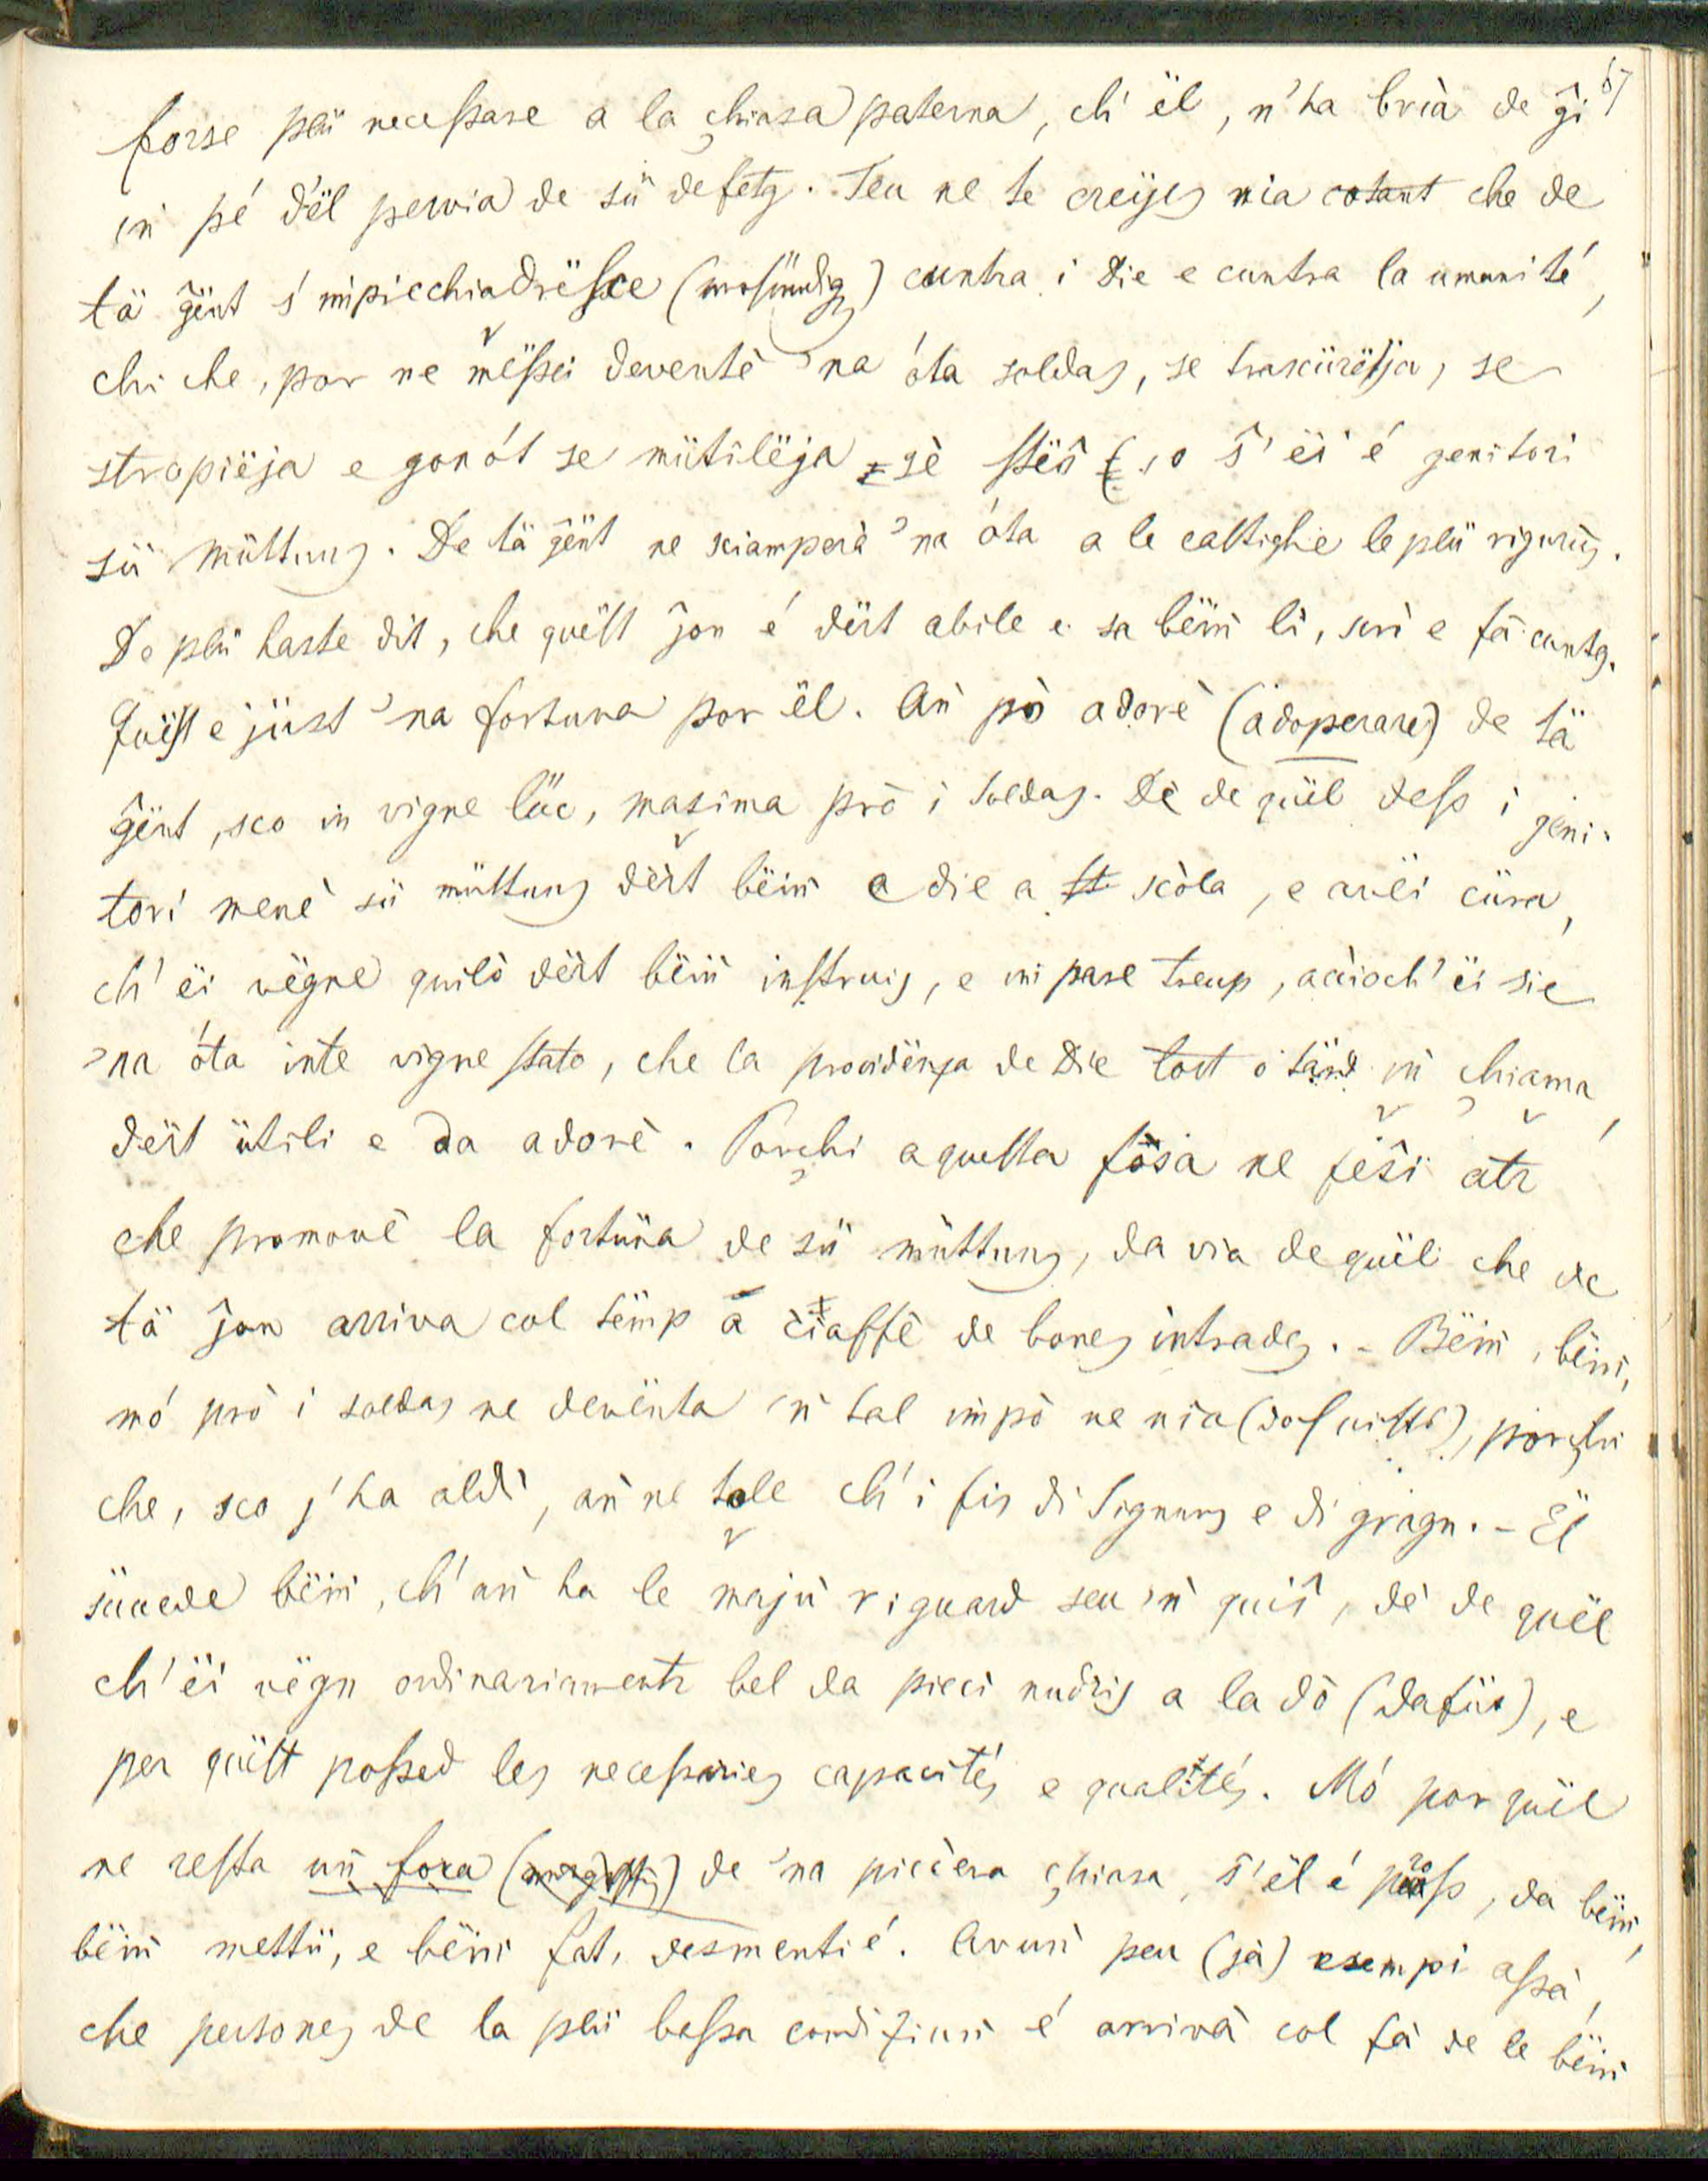 67
forse plü necessare a la chiasa paterna, ch' ël, n'ha brià de ĝi
in pé d'ël pervia de sü defetg. Teu ne te creijes nia cotant che de
tä ĝënt s' impicchiadrësce (versündig) cuntra i Die e cuntra la umanité,
chi che, por ne mëssei deventè 'na óta soldas, se trascürëja, se
stropiëja e gonót se mütilëja sè stës, o ŝ' ëi é genitori
sü müttuns. De tä ĝënt ne sciamperà 'na óta a le castighe le plü rigurus.
De plü haste dit, che quëst ĵon é dërt abile e sa bëin lì, scrì e fà cuntg.
Quëst e jüst 'na fortuna por ël. An pò adorè (adoperare) de tä
ĝënt, sco in vigne lüc, masima prò i soldas. Dè de quël dess i geni-
tori menè sü müttuns dërt bëin e die a scòla, e avëi cüra,
ch' ëi vëgne quilò dërt bëin instruis, e impare treup, acciòch' ëi sie
'na óta inte vigne stato, che la providënza de Die tost o tärd in chiama,
dërt ütili e da adorè. Porchi a questa fosa ne feŝi atr
che promovè la fortüna de sü müttuns, da via de quël che de
tä ĵon arriva col tëmp a ciaffè de bones intrades. - Bëin, bëin,
mó prò i soldas ne devënta 'n tal impò ne nia, porchi
che, sco j'ha aldì, an ne tole ch' i fis di Signurs e di gragn. - Ël
süccede bëin, ch' an ha le majù riguard seu 'n quiŝ, dè de quël
ch' ëi vëgn ordinariamentr bel da picci nudris a la dò (dafür), e
per quëst possed les necessaries capacités e qualités. Mó por quël
ne resta un fora de 'na piccera chiasa, ŝ'ël é pross, da bëin,
bëin mettü, e bëin fat, desmentié. Avun peu (jà) esempi assà,
che persones de la plü bassa condiziun é arrivà col fà de le bëin